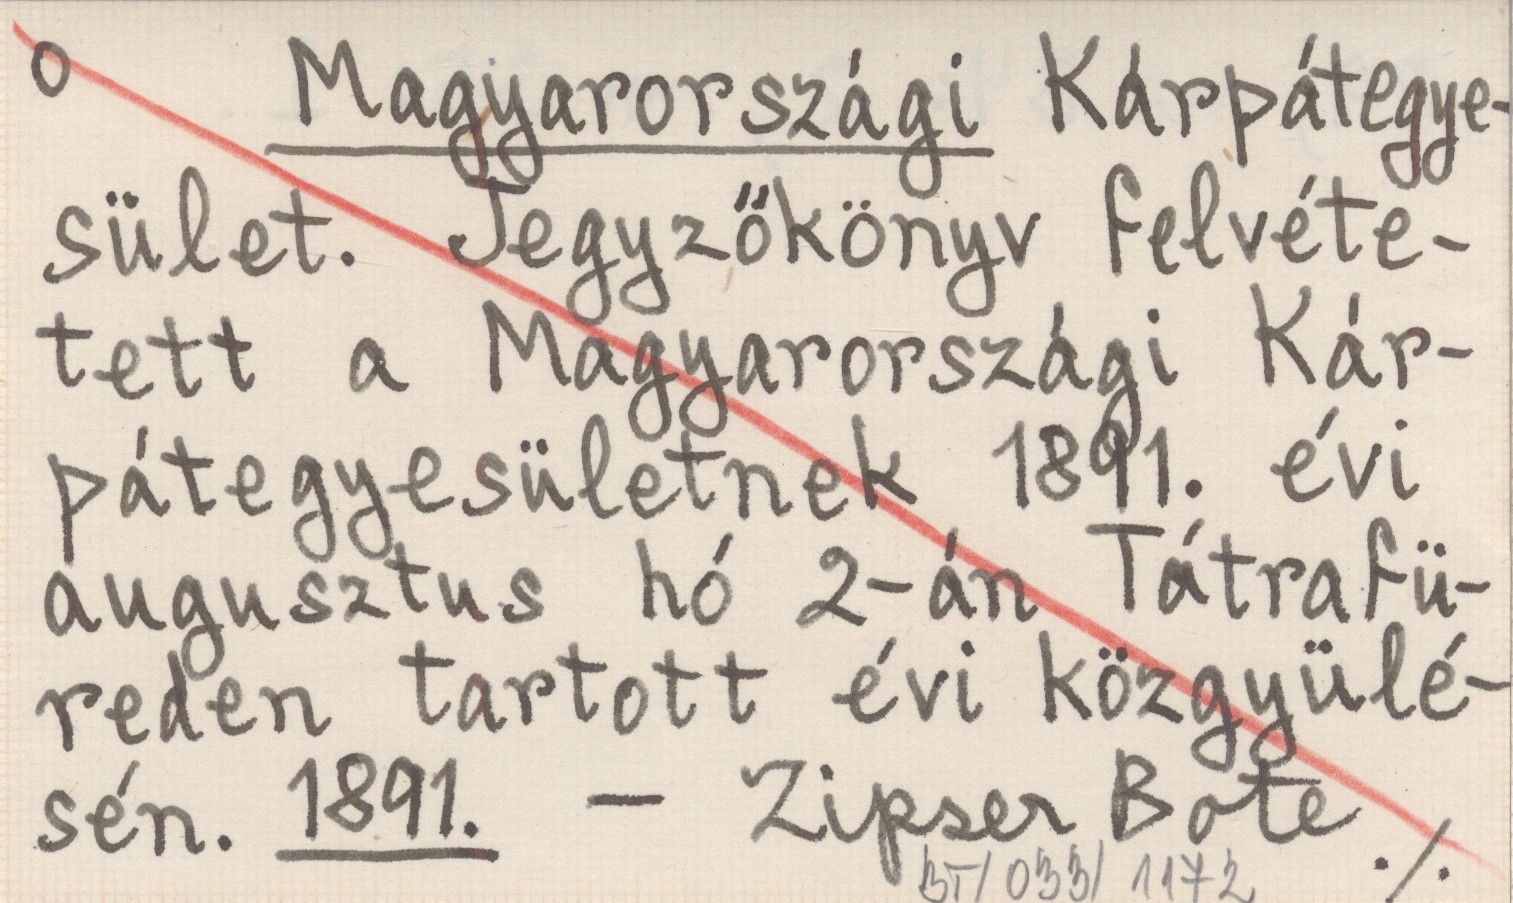 o Magyarországi Kárpátegye-
sület. Jegyzőkönyv felvéte-
tett a Magyarországi Kár-
pátegyesületnek 1891. évi
augusztus hó 2-án Tátrafü-
reden tartott évi közgyülé-
sén. 1891. — Zipser Bote ./.
BT/033/1172